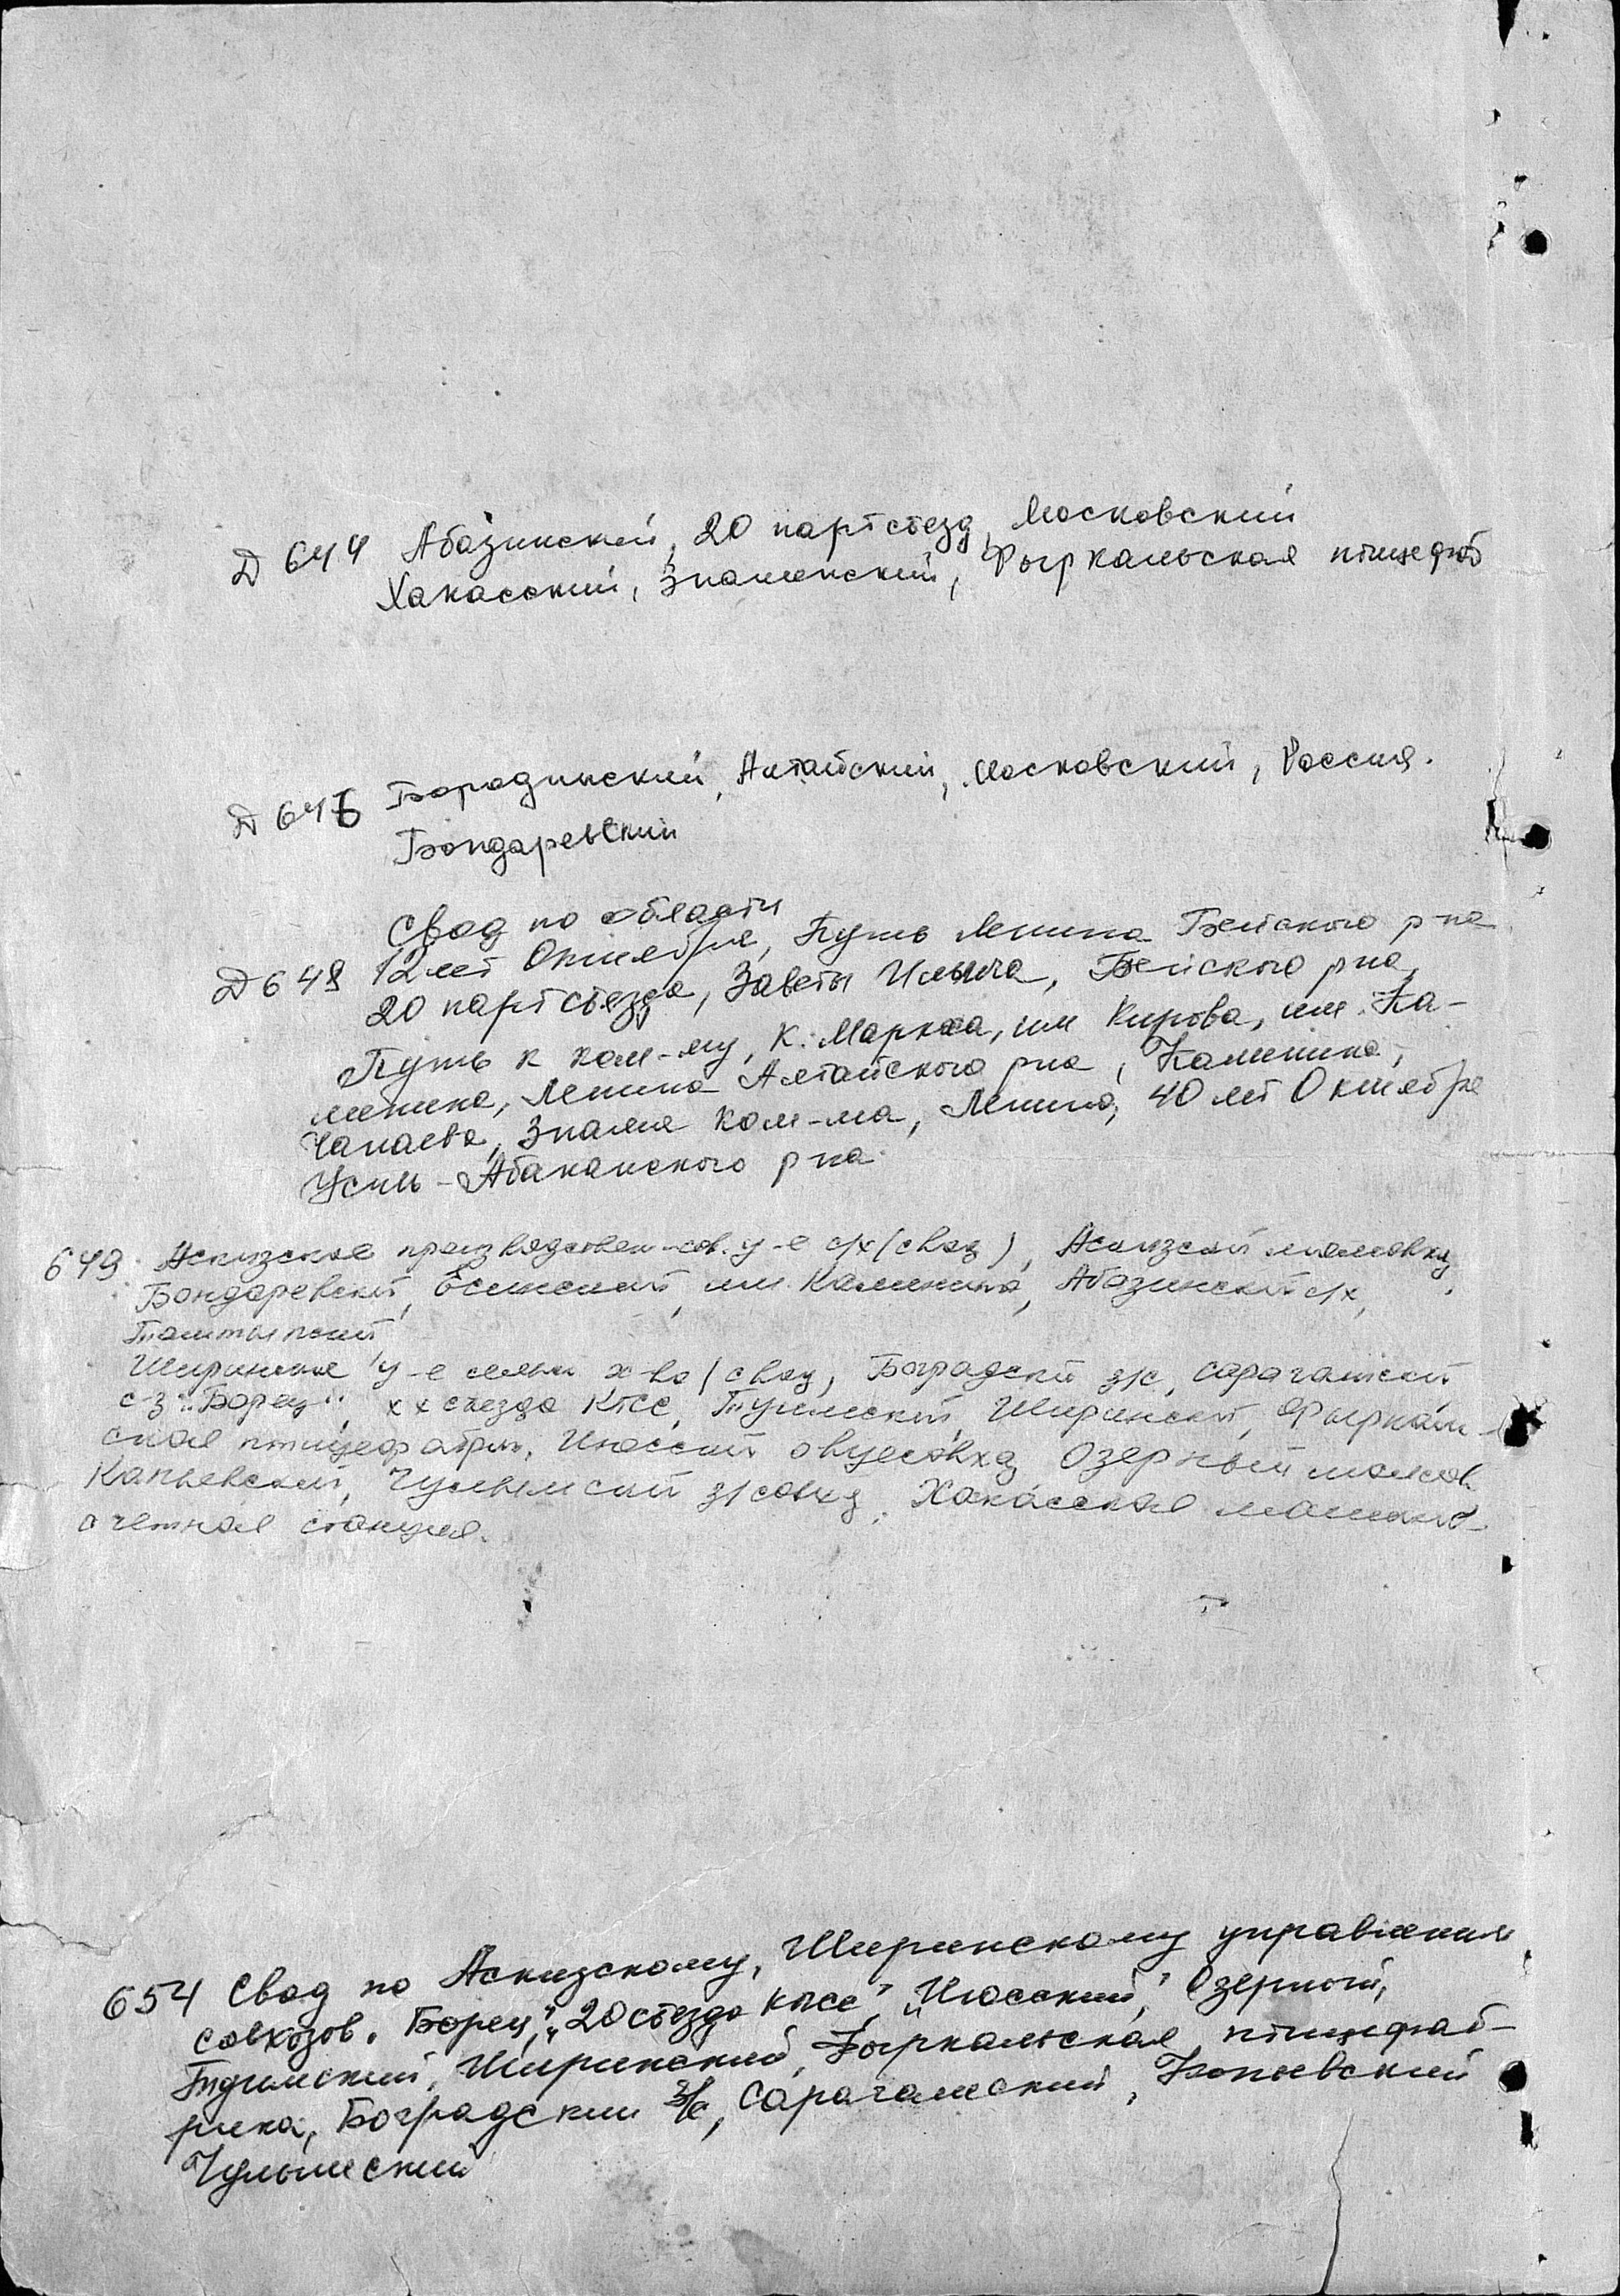 Д 644 Абазинский, 20 партсъезд, Московский
Хакасский, Знаменский, Фыркальская птицефаб
Д 646 Бородинский, Алтайский, Московский, Россия.
Бондаревский
Свод по области
Д 648 12 лет Октября, Путь Ленина Бейского р-на
20 партсъезда, Заветы Ильича, Бейского рна,
Путь к ком-му, К. Маркса, им Кирова, им. Ка-
линина, Ленина Алтайского рна, Калинина,
Чапаева, Знамя Ком-ма, Ленина, 40 лет Октября
Усть-Абаканского р на
649. Аскизское производствен-сов. у-е с/х (свод), Аскизский
Бондаревский, им. Калинина, Абазинский с/х,
Таштыпский
Ширинское у-е сельск х-во (свод, Боградский з/с, Сарагашский
с-з "Борец", хх съезда КПСС, Туимский, Ширинский, Фыркаль-
ская птицефабрик. Июсский овцесовхз Озерный
Копьевский, Чулымский з/совхз, Хакасская машино-
счетная станция.
654 Свод по Аскизскому, Ширинскому управления
совхозов. Борец, "20 съезда КПСС", "Июсский", Озерный,
Туимский, Ширинский, Фыркальская птицефаб-
рика, Боградский з/с, Сарагашский, Копьевский
Чулымский